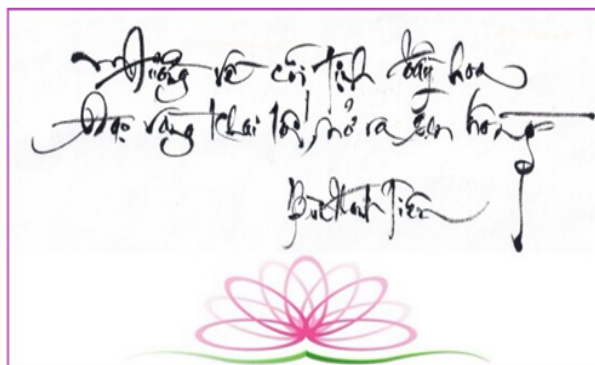 Hướng về cõi tịnh đầy hoa
Đạo vàng khai lối, mở ra sen hồng
Bùi Thanh